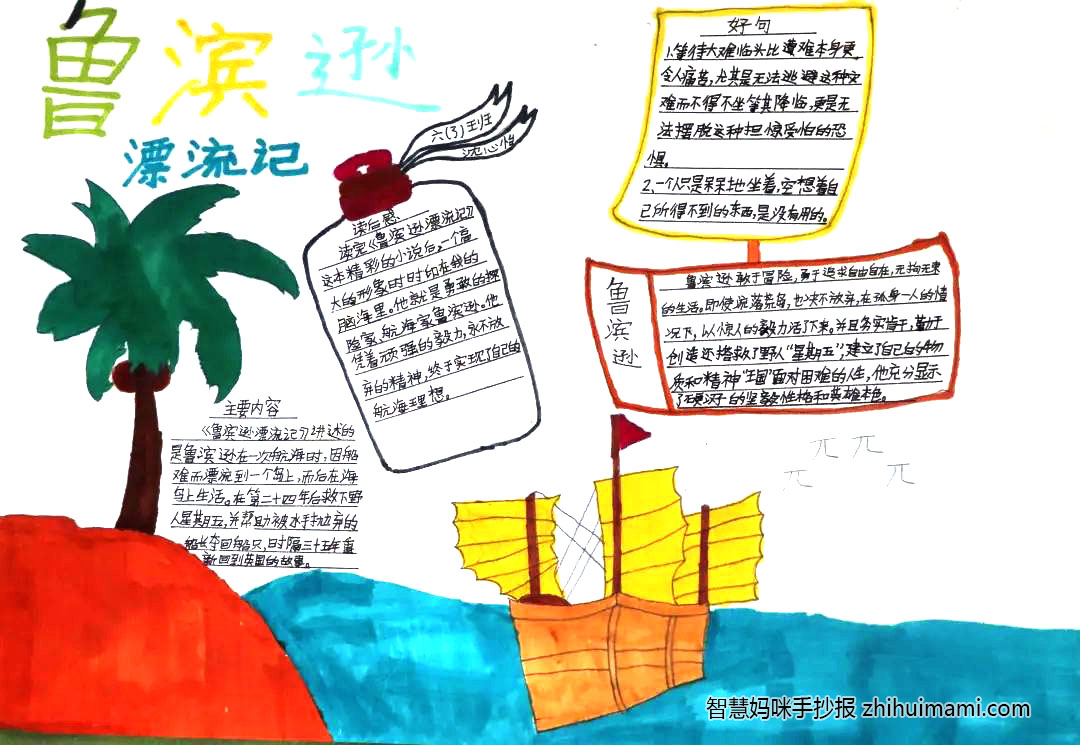 鲁滨逊
漂流记
六(3)王班
沈心怡
读后感
读完《鲁滨逊漂流记》
这本精彩的小说后,一个高
大的形象时时印在我的
脑海里。他就是勇敢的探
险家、航海家鲁滨逊。他
凭着顽强的毅力,永不放
弃的精神,终于实现了自己的
航海理想。
好句
1.等待大难临头比遭难本身更
令人痛苦,尤其是无法逃避这种灾
难而不得不坐等其降临,更是无
法摆脱这种担惊受怕的恐
惧。
2、一个人只是呆呆地坐着,空想着自
己所得不到的东西,是没有用的。
鲁滨逊
鲁滨逊敢于冒险,勇于追求自由自在,无拘无束
的生活。即使流落荒岛,也决不放弃,在孤身一人的情
况下,以惊人的毅力活了下来。并且务实肯干,勤于
创造还搭救了野人“星期五”,建立了自己的物
质和精神“王国”面对困难的人生,他充分显示
了硬汉子的坚毅性格和英雄本色。
主要内容
《鲁滨逊漂流记》讲述的
是鲁滨逊在一次航海时,因船
难而漂流到一个岛上,而后在海
岛上生活。在第二十四年后救下野
人星期五,并帮助被水手抛弃的
船长夺回船只,时隔三十五年重
新回到英国的故事。
智慧妈咪手抄报 zhihuimami.com